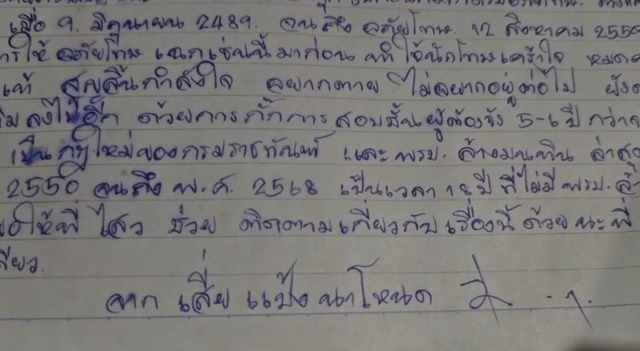 เมื่อ 9. มิถุนายน 2489. จนถึง อภัยโทษ. 12 สิงหาคม 2559
การให้ อภัยโทษ แบบเช่นนี้มาก่อน ทำให้นักโทษเศร้าใจ หมด
แท้ สูญสิ้นกำลังใจ อยากตาย ไม่อยากอยู่ต่อไป ยัง
ลงไปอีก ด้วยการกั๊กการ สอบชั้นผู้ต้องขัง 5-6 ปี กว่า
เป็นกฎใหม่ของกรมราชทัณฑ์ และพรบ. ล้างมนทิน ล่าสุด
2550 จนถึง พ.ศ. 2568 เป็นเวลา 18 ปี ที่ไม่มี พรบ. ล้
ให้พี่ ไสว ช่วย ติดตามเกี่ยวกับเรื่องนี้ด้วยนะพี่
เดียว.
จาก เสี่ย แป้ง นาโหนด